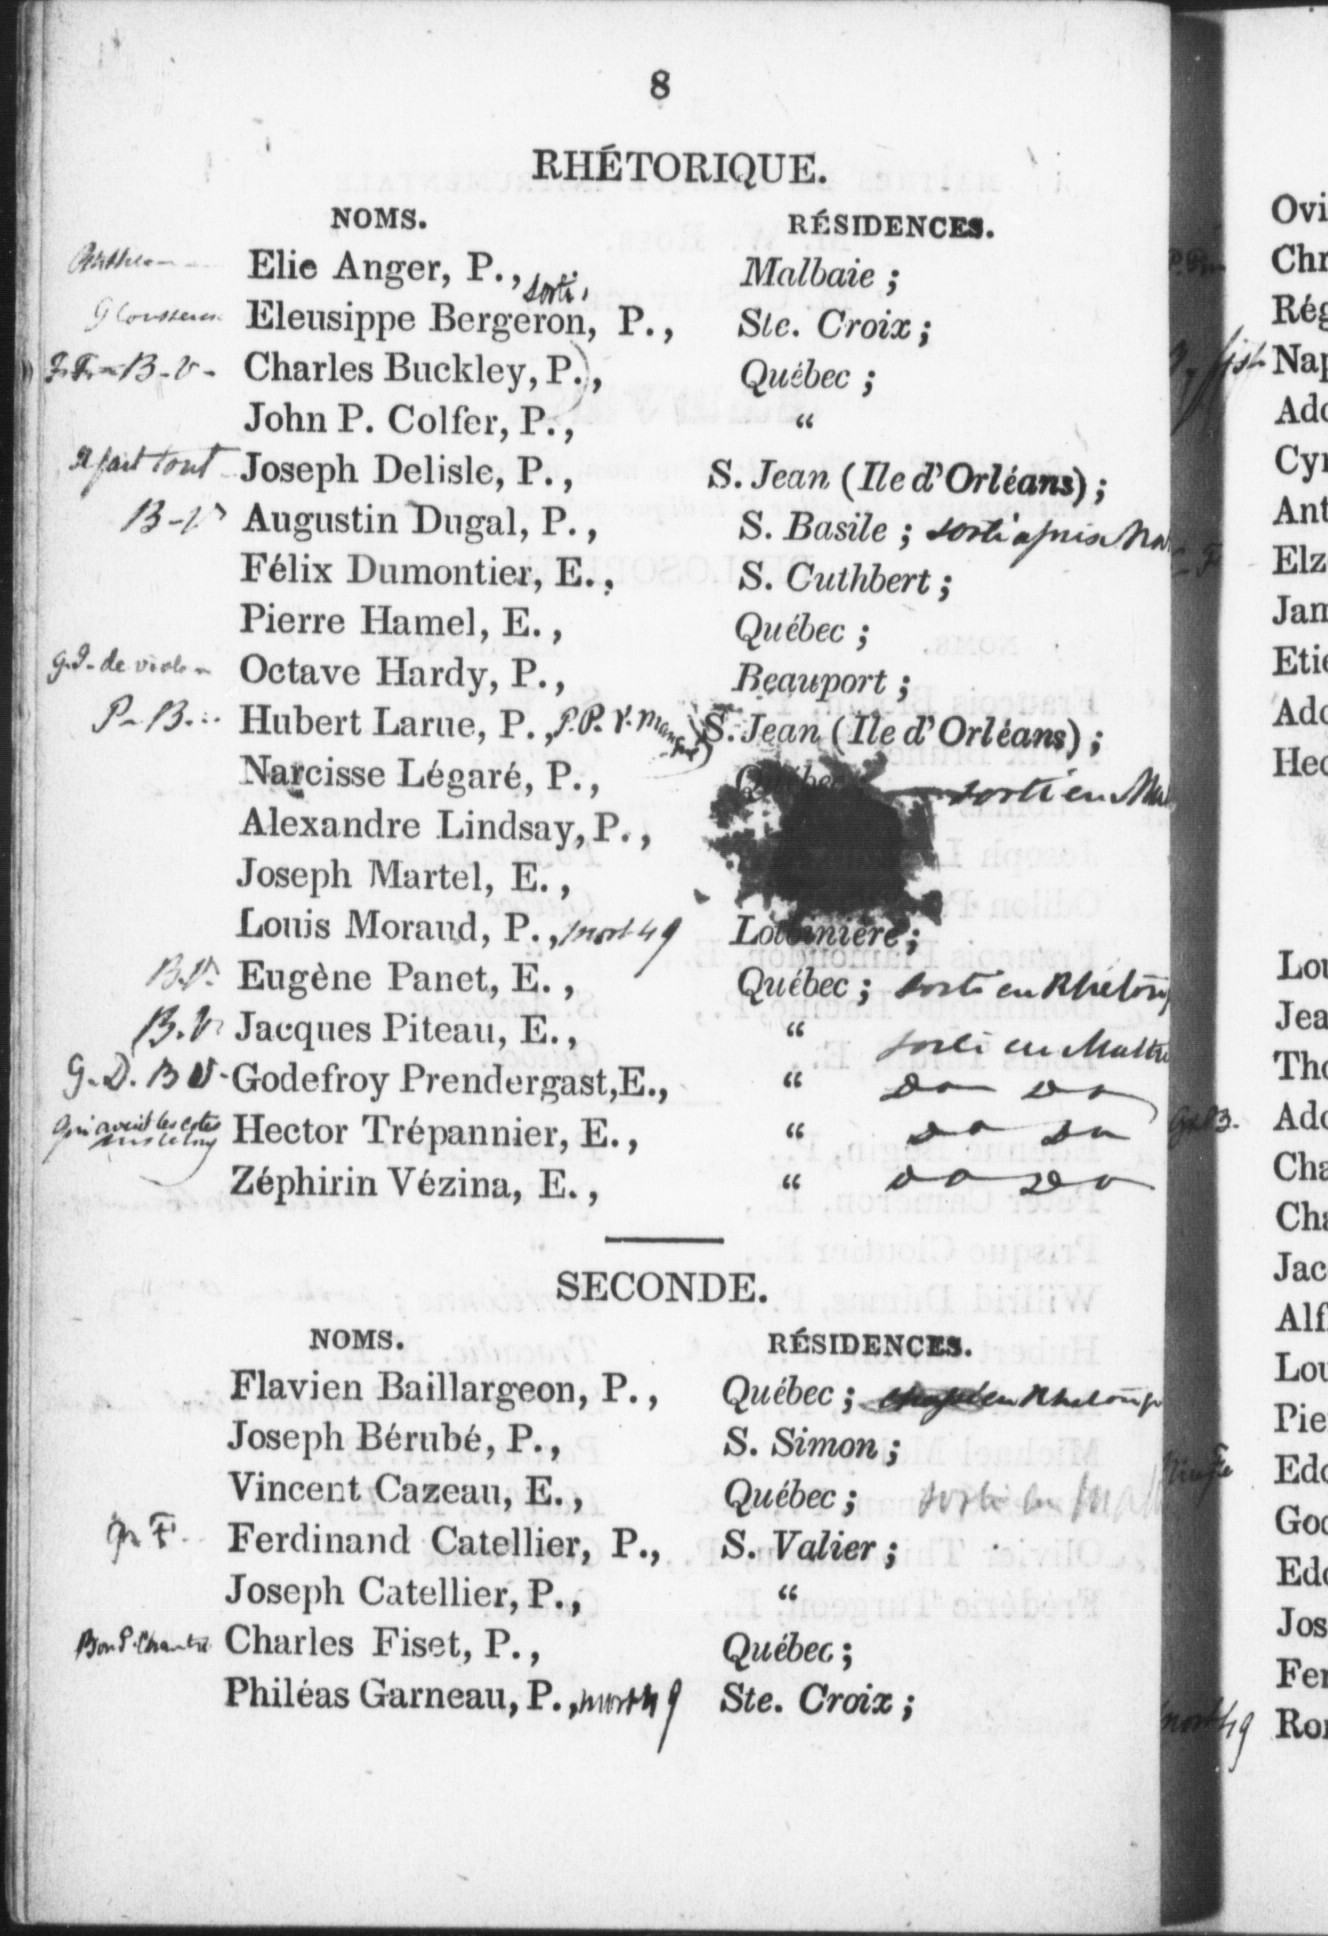 8
RHÉTORIQUE.
NOMS. RÉSIDENCES.
Elie Anger, P., Malbaie ;
sorti,
Eleusippe Bergeron, P., Ste. Croix ;
B-V- Charles Buckley, P., Québec ;
John P. Colfer, P., “
Il fait tout Joseph Delisle, P., S. Jean (Ile d'Orléans) ;
B-V Augustin Dugal, P., S. Basile ; sorti
Félix Dumontier, E., S. Cuthbert ;
Pierre Hamel, E., Québec ;
de violon Octave Hardy, P., Beauport ;
P-B. Hubert Larue, P., S. Jean (Ile d'Orléans) ;
Narcisse Légaré, P., Québec sorti en
Alexandre Lindsay, P.,
Joseph Martel, E.,
Louis Moraud, P., mort 49 Lotbinière ;
B.V. Eugène Panet, E., Québec ; sorti en Rhétoriq
B.V. Jacques Piteau, E., “ sorti en
G.D. B V- Godefroy Prendergast, E., “ Do Do
Hector Trépannier, E., “ Do Do
Zéphirin Vézina, E., “ Do Do
SECONDE.
NOMS. RÉSIDENCES.
Flavien Baillargeon, P., Québec ; en
Joseph Bérubé, P., S. Simon ;
Vincent Cazeau, E., Québec ; sorti en
F Ferdinand Catellier, P., S. Valier ;
Joseph Catellier, P., “
Charles Fiset, P., Québec ;
Philéas Garneau, P., mort 49 Ste. Croix ;
Ovi
Chr
Rég
Nap
Ado
Cyr
Ant
Elz
Jam
Etie
Ado
Hec
Lou
Jea
Tho
Ado
Cha
Cha
Jac
Alf
Lou
Pie
Edo
God
Edo
Jos
Fer
mort 49 Ron